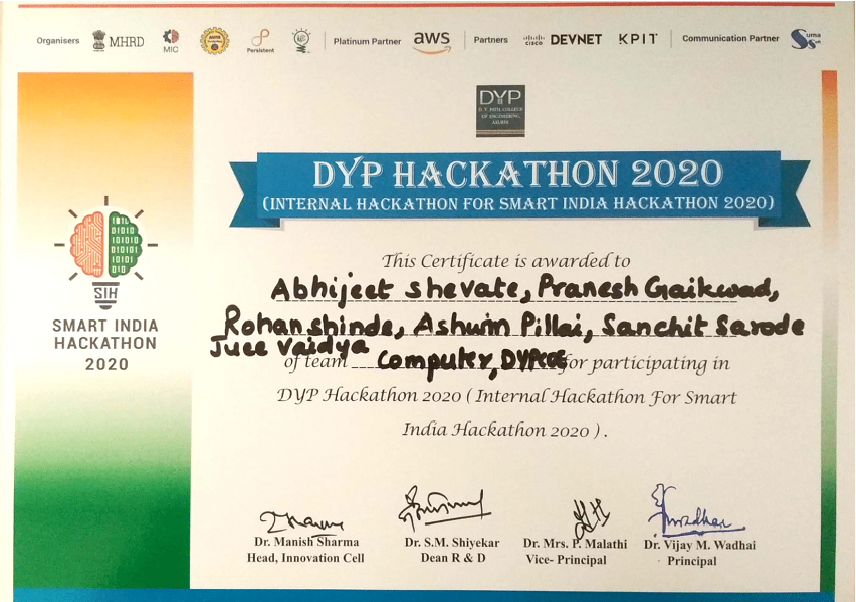 Organisers MHRD MIC Persistent Platinum Partner aws Partners CISCO DEVNET KPIT Communication Partner
DYP
D. Y. PATIL COLLEGE
OF ENGINEERING,
AKURDI
DYP HACKATHON 2020
(INTERNAL HACKATHON FOR SMART INDIA HACKATHON 2020)
This Certificate is awarded to
Abhijeet Shevate, Pranesh Gaikwad,
Rohan Shinde, Ashwin Pillai, Sanchit Sarode
Juee Vaidya
of team Computer, DYPCOE for participating in
DYP Hackathon 2020 ( Internal Hackathon For Smart
India Hackathon 2020 ) .
SIH
SMART INDIA
HACKATHON
2020
Dr. Manish Sharma
Head, Innovation Cell
Dr. S.M. Shiyekar
Dean R & D
Dr. Mrs. P. Malathi
Vice- Principal
Dr. Vijay M. Wadhai
Principal